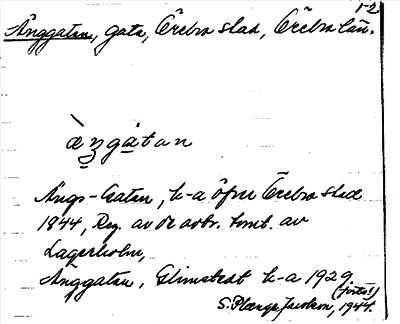 1-2
Änggatan, gata, Örebro stad, Örebro län.
à̀ŋgatan
Ängs-Gatan, k-a öfver Örebro stad
1844, Reg. av de avbr. tomt. av
Lagerholm,
Änggatan, Glimstedt k-a 1929
S. Plænge Jacobson, 1944.